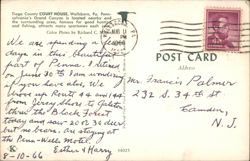 Tioga County COURT HOUSE, Wellsboro, Pa. Pennsylvania's Grand Canyon is located nearby and the surrounding area, famous for good hunting and fishing, attracts many sportsmen each
Color Photo by Richard C.
We are spending a few
days in this beautiful
part of Penna. I retired
on June 30 & am wondering
if you have also. We
drove up Route 44 from
Jersey Shore to Galeton
thru the Black Forest
today and saw 20 & 30 deer
but no bears. are staying at
the Penn-Wells Motel.
Esther & Harry
8-10-66
POST CARD
Address
Mr. Francis Palmer
232 S. 34th St
Camden,
N. J.